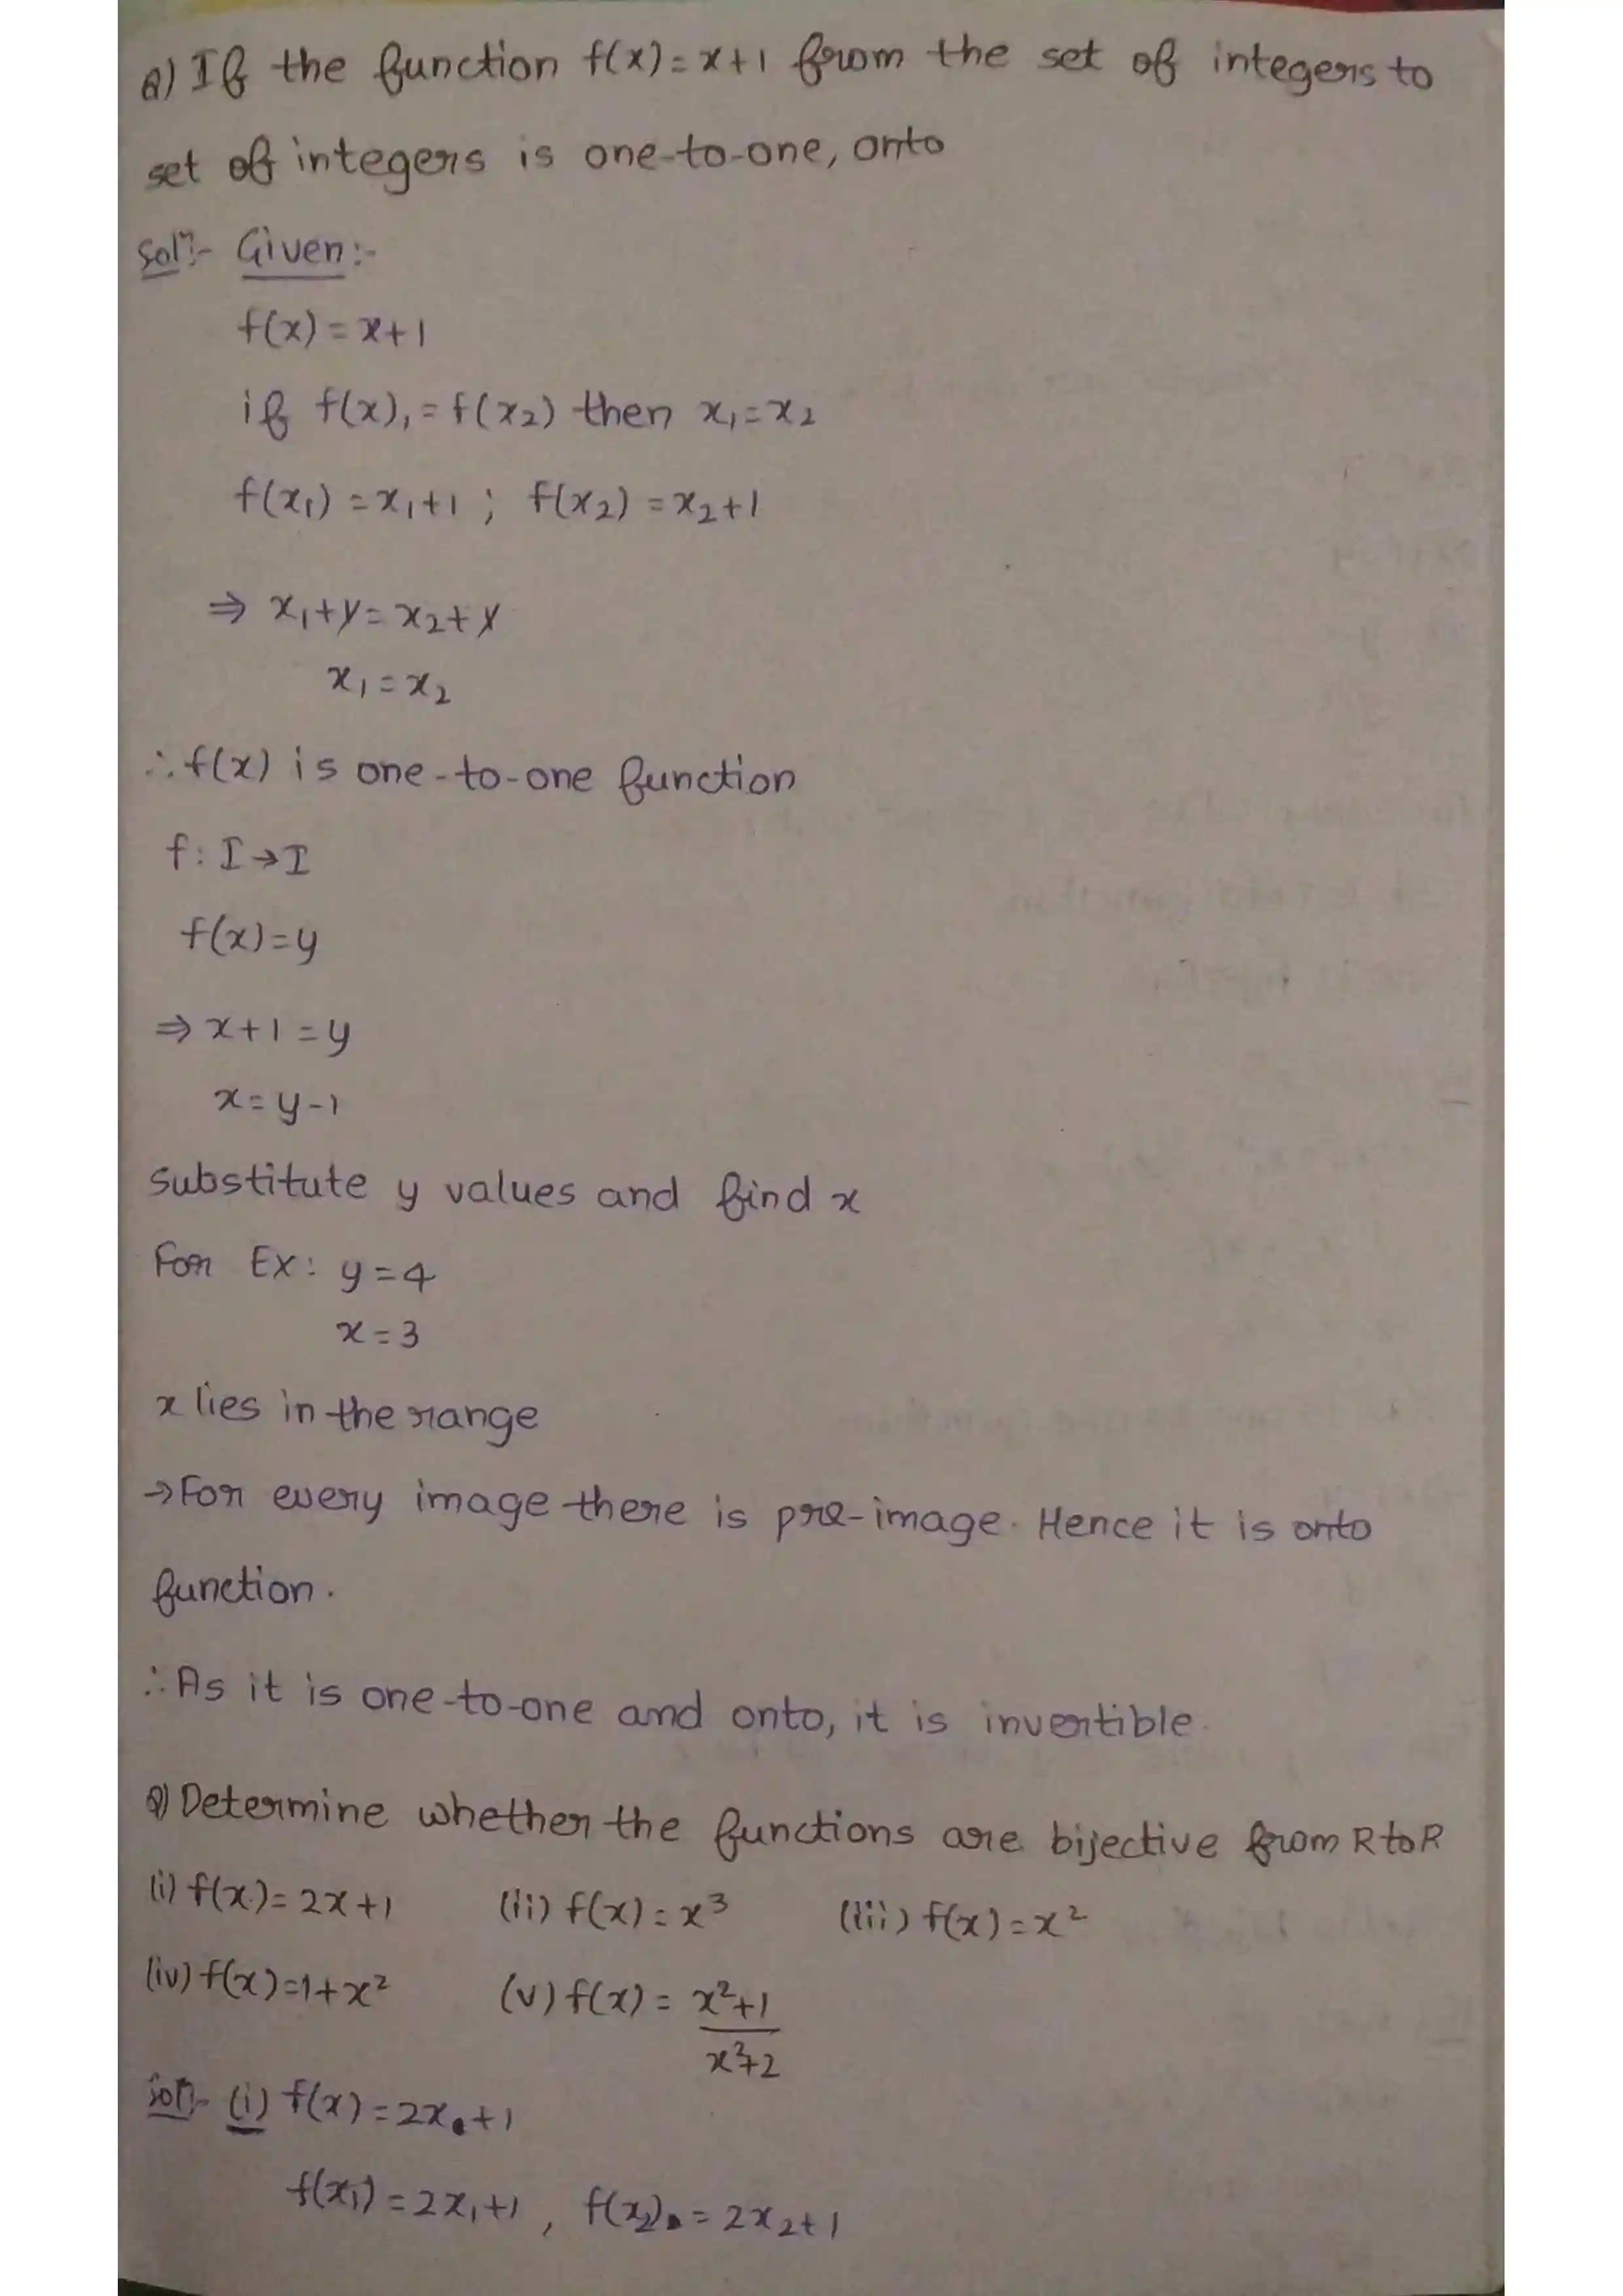 Q) If the function f(x)=x+1 from the set of integers to
set of integers is one-to-one, onto
Solⁿ:- Given:-
f(x)=x+1
if f(x)₁=f(x₂) then x₁=x₂
f(x₁)=x₁+1; f(x₂)=x₂+1
⇒ x₁+1=x₂+1
x₁=x₂
∴f(x) is one-to-one function
f: I→I
f(x)=y
⇒x+1=y
x=y-1
substitute y values and find x
For Ex: y=4
x=3
x lies in the range
→For every image there is pre-image. Hence it is onto
function.
∴As it is one-to-one and onto, it is invertible.
Q) Determine whether the functions are bijective from R to R
(i) f(x)=2x+1 (ii) f(x)=x³ (iii) f(x)=x²
(iv) f(x)=1+x² (v) f(x)= x²+1
x²+2
Solⁿ:- (i) f(x)=2x+1
f(x₁)=2x₁+1, f(x₂)=2x₂+1